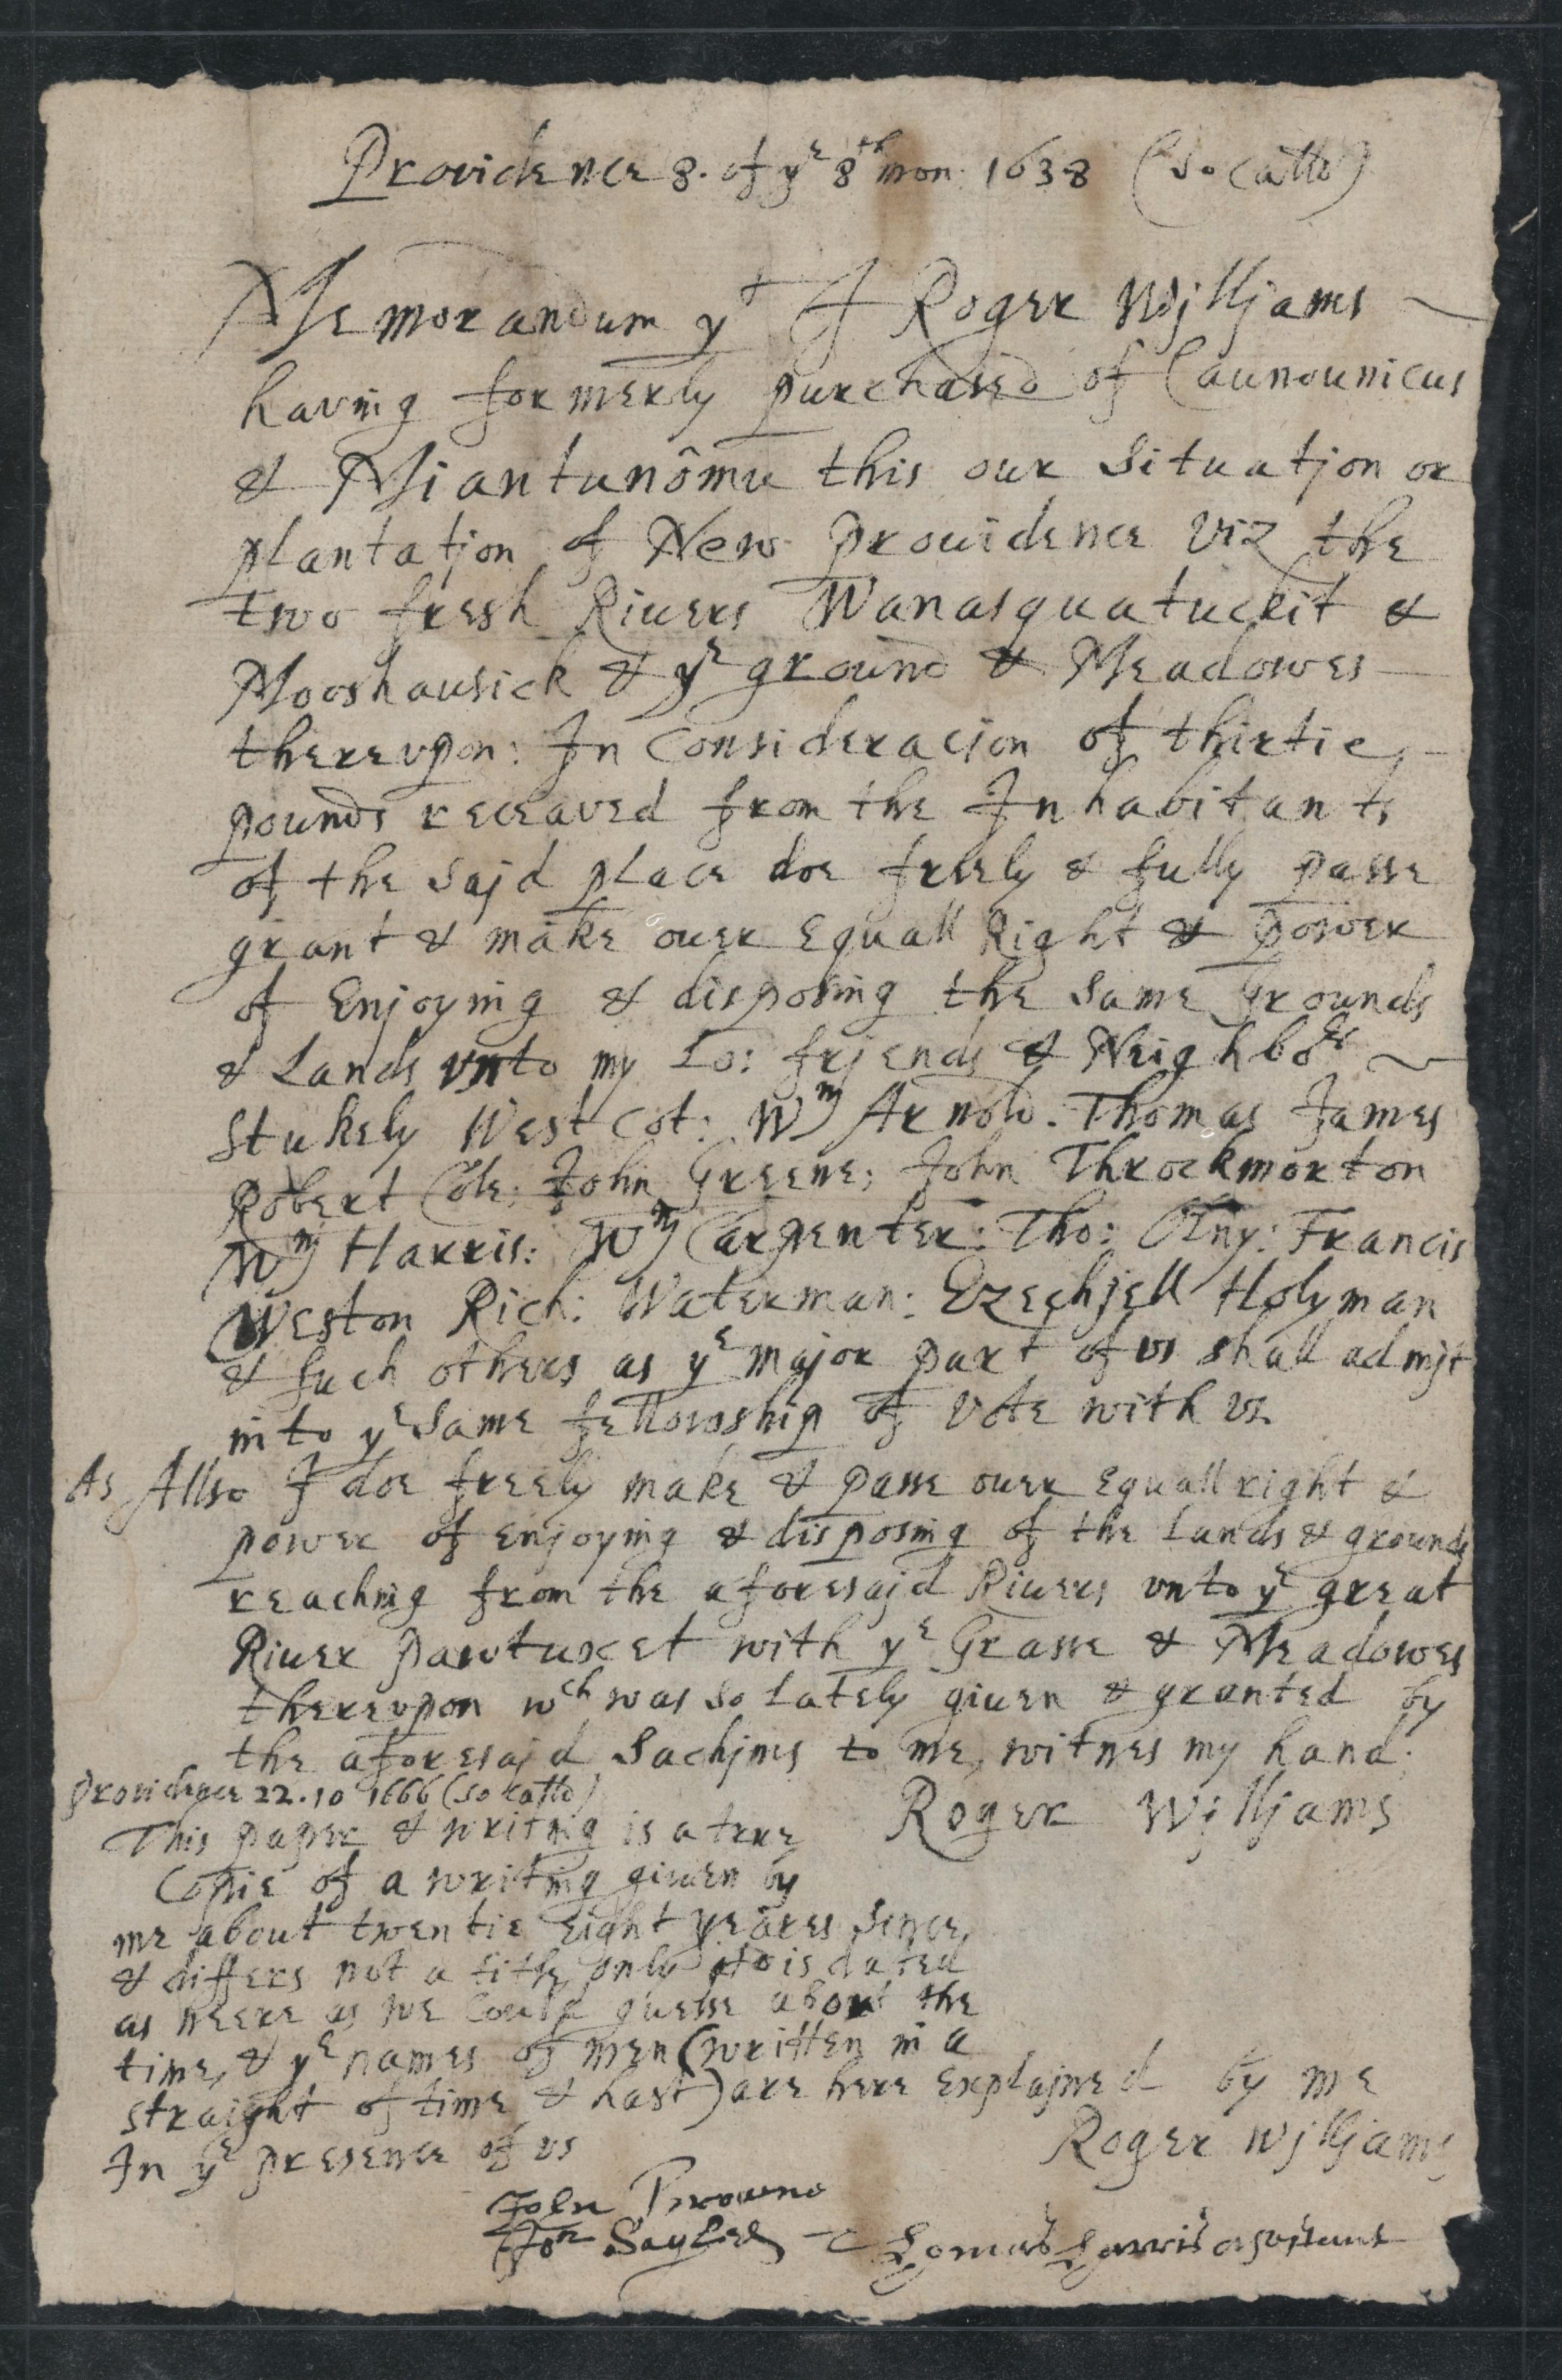 Providence 8. of yᵉ 8ᵗʰ mon: 1638 (so calld)
Memorandum yᵗ I Roger Wjlljams
having formerly purchased of Caunounicus
& Miantunômu this our Situatjon or
plantatjon of New providence viz the
two fresh Riuers Wanasquatuckit &
Mooshausick & yᵉ ground & Meadowes
therevpon: In Consideracion of thirtie
pounds receaved from the Inhabitants
of the sajd place doe freely & fully passe
grant & make ouer Equall Right & power
of Enjoying & disposing the same Grounds
& Lands vnto my Lo: frjends & Neighboʳˢ
Stukely Westcot: Wᵐ Arnold: Thomas James
Robert Cole: John Greene; John Throckmorton
Wᵐ Harris: Wᵐ Carpenter: Tho: Olny: Francis
Weston Rich: Waterman: Ezechjell Holyman
& such others as yᵉ major part of vs shall admjt
into yᵉ same fellowship of vote with vs.
As Allso I doe freely make & passe ouer equall right &
power of enjoying & disposing of the Lands & grounds
reaching from the aforesajd Riuers vnto yᵉ great
Riuer pawtuxet with yᵉ Grasse & Meadowes
therevpon wᶜʰ was so Lately giuen & granted by
the aforesajd Sachjms to me, witnes my hand.
Roger Wjlljams
providence 22. 10 1666 (so calld)
This paper & writing is a true
Copie of a writing giuen by
me about twentie eight yeares since
& differs not a title only is dated
as neere as we could guesse about the
time, & yᵉ names of men (written in a
straight of time & hast) are here explajned by me
Roger Wjlljams
In yᵉ presence of vs
John Browne
Joⁿ Sayles
Tomas Harris asistant